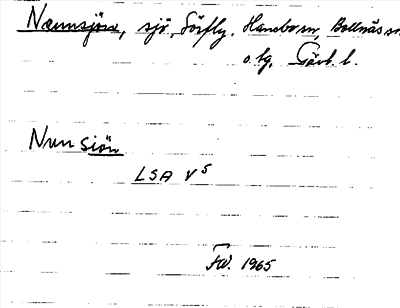 Nennsjön, sjö, Sörfly, Hanebo sn, Bollnäs sn
o. tg, Gävl. l.
Nunsiön
LSA V5
FW. 1965